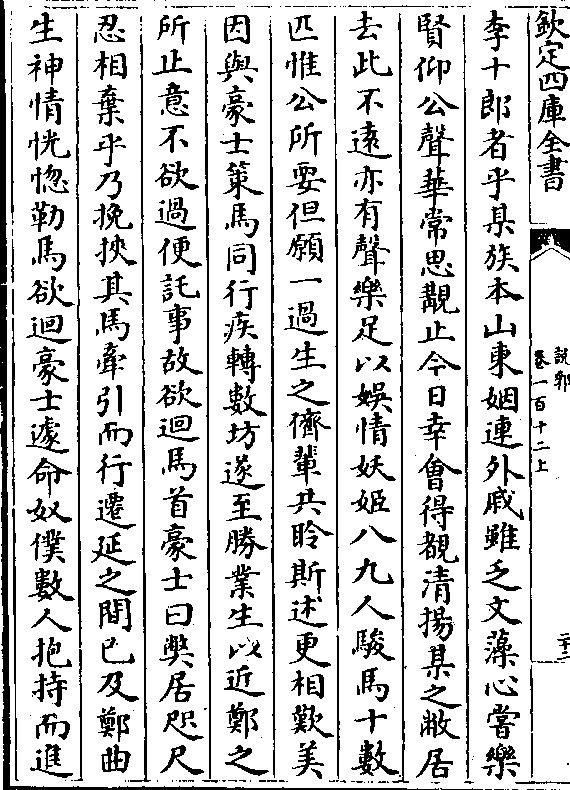 欽定四庫全書
說郛
卷一百十二上
李十郎者乎某族本山東姻連外戚雖乏文藻心嘗樂
賢仰公聲華常思覯止今日幸會得覩清揚某之敝居
去此不遠亦有聲樂足以娛情妖姬八九人駿馬十數
匹惟公所要但願一過生之儕輩共聆斯述更相歎美
因與豪士策馬同行疾轉數坊遂至勝業生以近鄭之
所止意不欲過便託事故欲迴馬首豪士曰弊居咫尺
忍相棄乎乃挽挾其馬牽引而行遷延之間已及鄭曲
生神情恍惚勒馬欲迴豪士遽命奴僕數人抱持而進